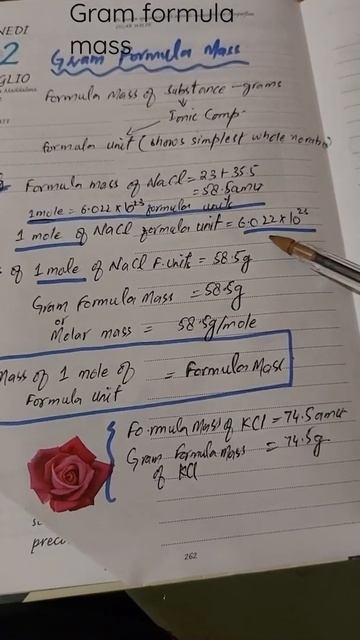 Gram formula
mass
NEDI
2
GLIO
Gram Formula Mass
formula Mass of substance - grams
Ionic Comp
formula unit (shows simplest whole number
Formula mass of NaCl = 23 + 35.5
= 58.5amu
1mole = 6.022 x 10²³ formula units
1 mole of NaCl formula unit = 6.022 x 10²³
of 1 mole of NaCl F.unit = 58.5g
Gram Formula Mass = 58.5g
or
Molar mass = 58.5g/mole
Mass of 1 mole of = Formula Mass
Formula unit
Formula Mass of KCl = 74.5amu
Gram Formula Mass = 74.5g
of KCl
prec
262